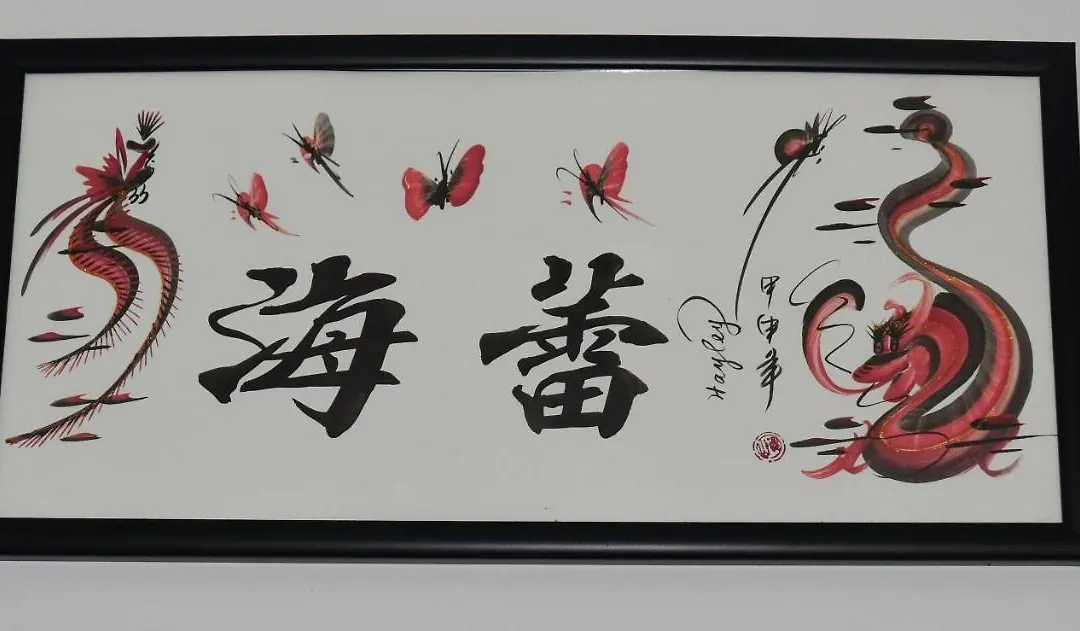 海蕾
甲申年